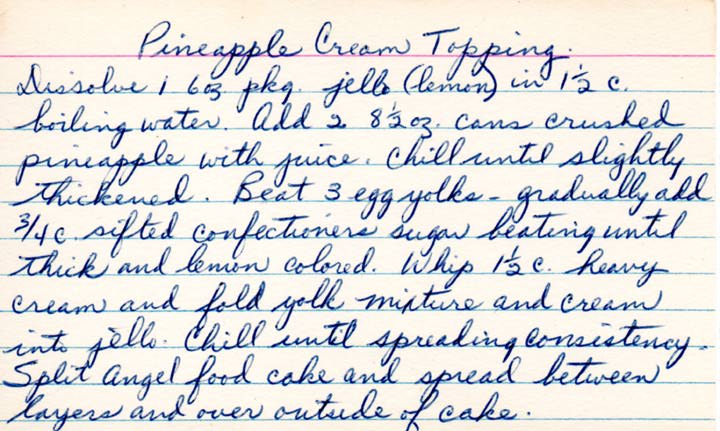 Pineapple Cream Topping.
Dissolve 1 6oz. pkg. jello (lemon) in 1½ c.
boiling water. Add 2 8½ oz. cans crushed
pineapple with juice. Chill until slightly
thickened. Beat 3 egg yolks - gradually add
3/4 c. sifted confectioners sugar beating until
thick and lemon colored. Whip 1½ c. heavy
cream and fold yolk mixture and cream
into jello. Chill until spreading consistency.
Split Angel food cake and spread between
layers and over outside of cake.